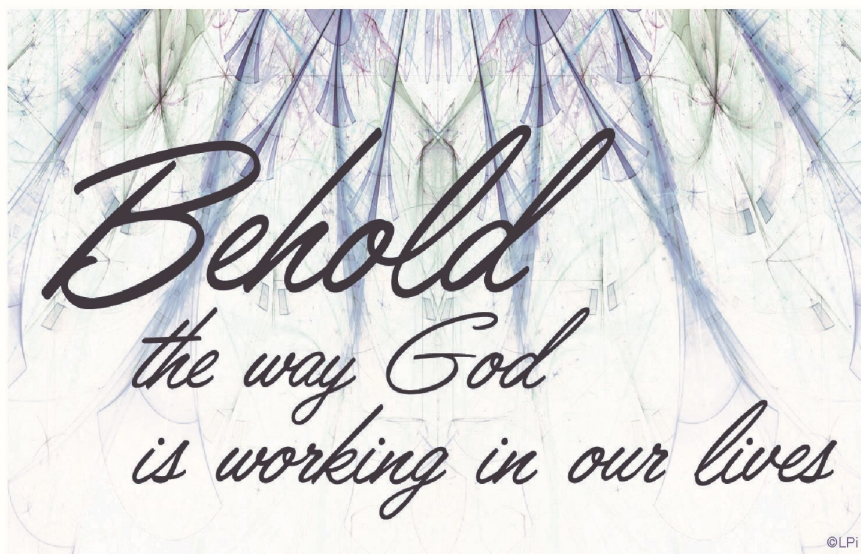 Behold
the way God
is working in our lives
©LPi